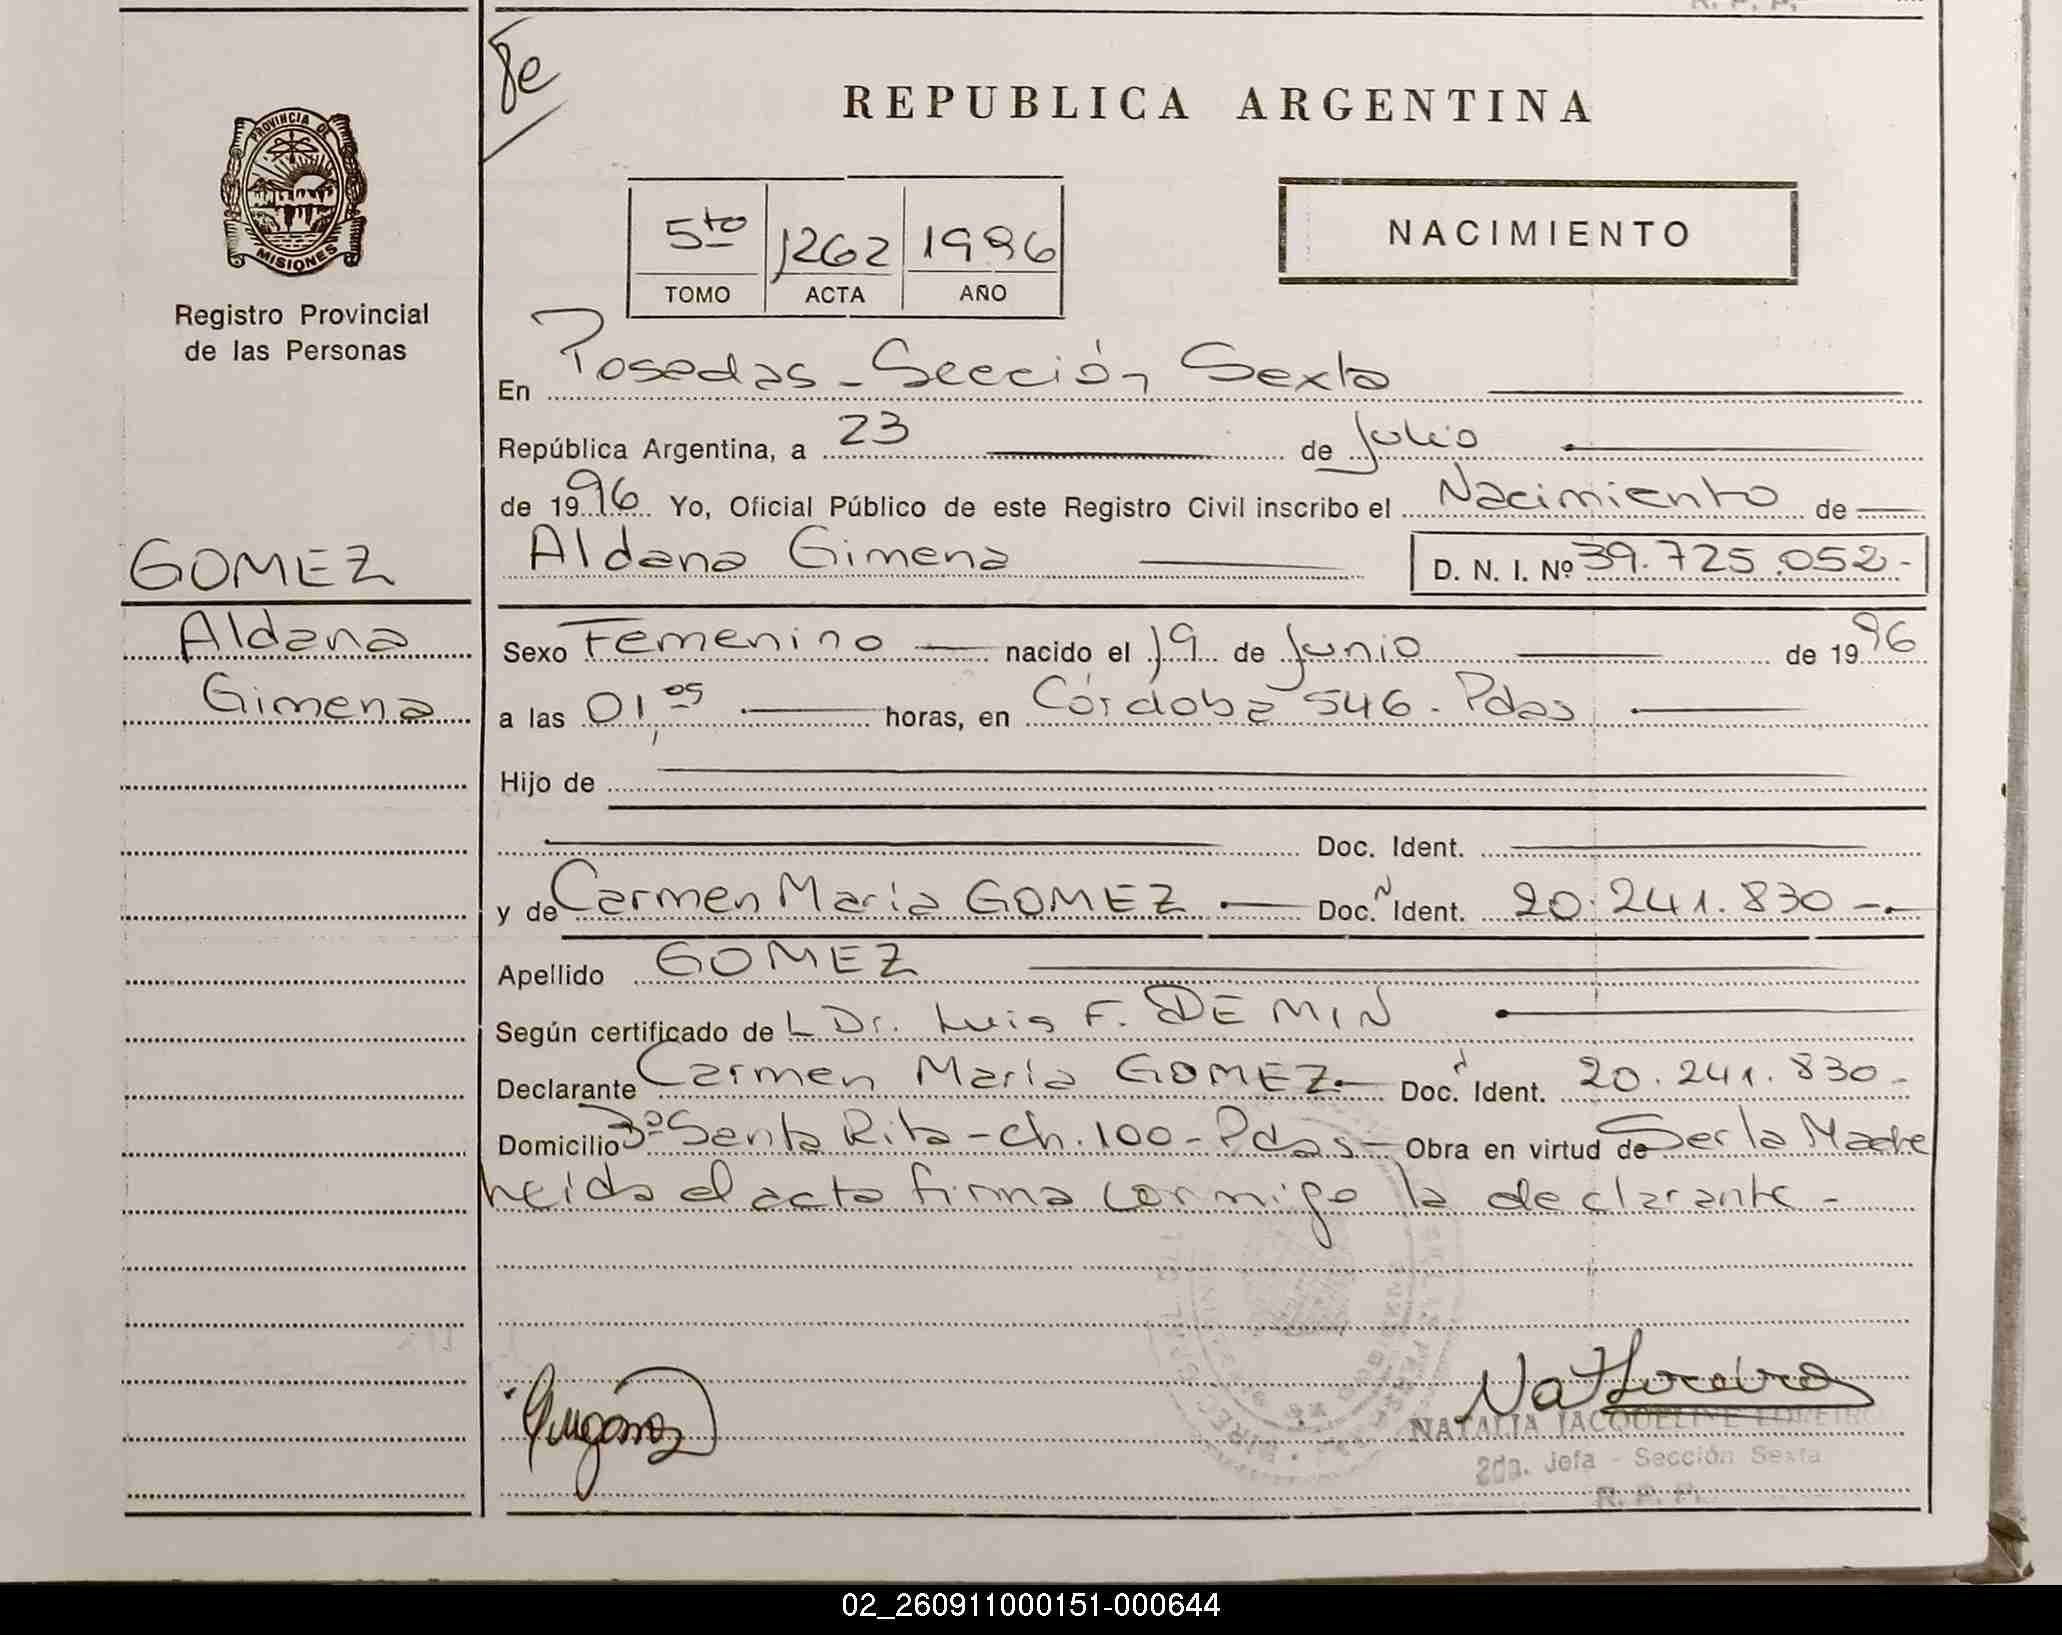 8e
REPUBLICA ARGENTINA
PROVINCIA DE
MISIONES
5to 1262 1996
TOMO ACTA AÑO
NACIMIENTO
Registro Provincial
de las Personas
En Posadas - Sección Sexta
República Argentina, a 23 de Julio
de 1996 Yo, Oficial Público de este Registro Civil inscribo el Nacimiento de
GOMEZ
Aldana Gimena D. N. I. Nº 39.725.052.-
Aldana
Sexo Femenino nacido el 19 de Junio de 1996
Gimena
a las 01,05 horas, en Córdoba 546. Pdas
Hijo de
Doc. Ident.
y de Carmen Maria GOMEZ Doc. N Ident. 20.241.830 -.-
Apellido GOMEZ
Según certificado de L Dr. Luis F. DEMIN
Declarante Carmen Maria GOMEZ Doc. Ident. 20.241.830-
Domicilio Bº Santa Rita - Ch. 100 - Pdas - Obra en virtud de Ser la Madre
Leida el acta firma conmigo la declarante -
NATALIA JACQUELINE LOREIRO
2da. Jefa - Sección Sexta
R. P. P.
02_260911000151-000644